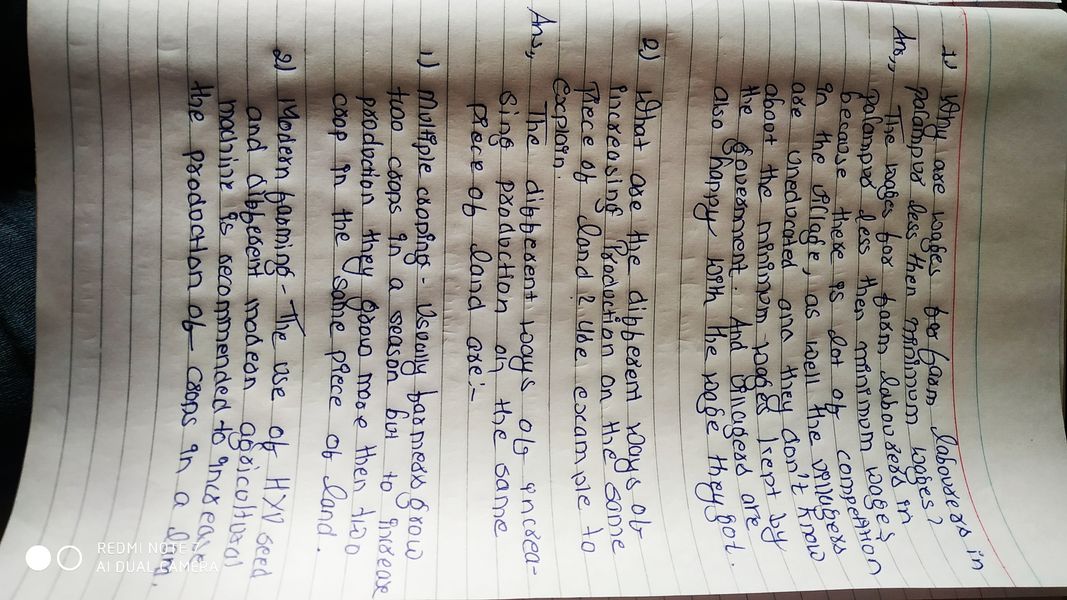 1.) Why are wages for farm labourers in
palampur less then minimum wages?
Ans,, The wages for farm labourers in
palampur less then minimum wages
because there is lot of competition
in the village, as well the villagers
are uneducated and they don't know
about the minimum wages kept by
the goverment. And villagers are
also happy with the wage they got.
2) What are the different ways of
increasing Production on the same
Piece of land? Use example to
Explain.
Ans,, The different ways of increa-
sing production on the same
piece of land are:-
1) Multiple croping - Usually farmers grow
two crops in a season but to increase
production they grow more then two
crop in the same piece of land.
2) Modern farming - The use of HYV seed
and different modern agricultural
machine is recommended to increase
the production of crops in a
REDMI NOTE 7
AI DUAL CAMERA